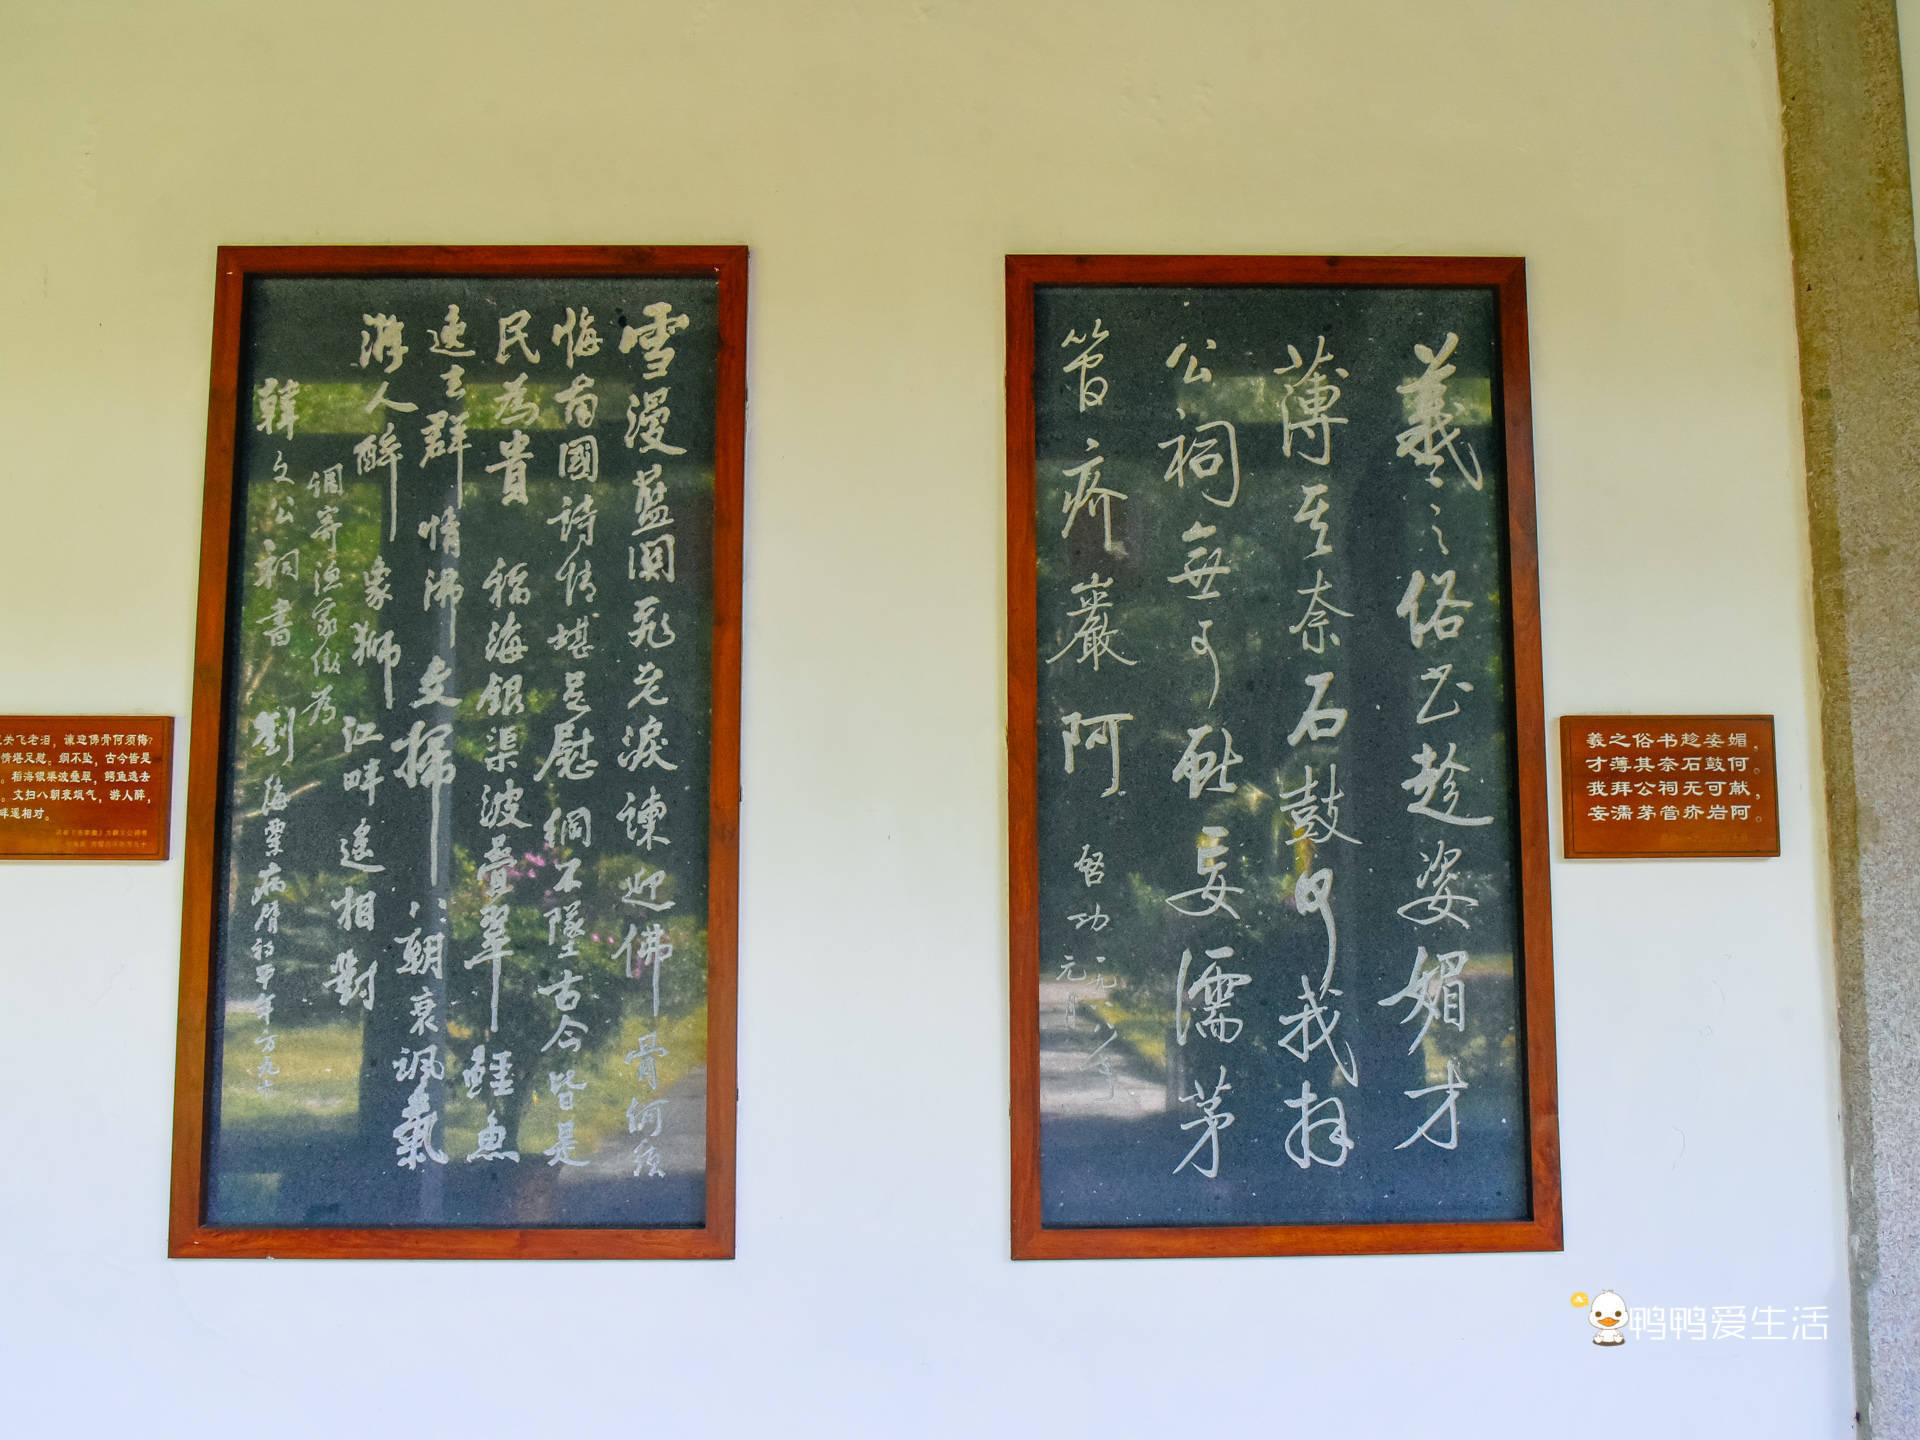 羲之俗书趁姿媚，
才薄其奈石鼓何。
我拜公祠无可献，
妄濡茅管疥岩阿。
羲之俗書趁姿媚才
薄其奈石鼓何我拜
公祠無可獻妄濡茅
管疥巖阿
啓功
一九八八年
元月
雪漫藍関飛老淚諫迎佛骨何須
悔有國詩情堪足慰綱不墜古今皆是
民為貴 稻海銀渠波疊翠鱷魚
逃去群情沸文掃八朝衰颯氣
游人醉象狮江畔遙相對
调寄漁家傲為
韓文公祠書 劉海粟病臂初平年方九十
关飞老泪，谏迎佛骨何须悔？
情堪足慰。纲不坠，古今皆是
。稻海银渠波叠翠，鳄鱼逃去
。文扫八朝衰飒气，游人醉，
畔遥相对。
鸭鸭爱生活